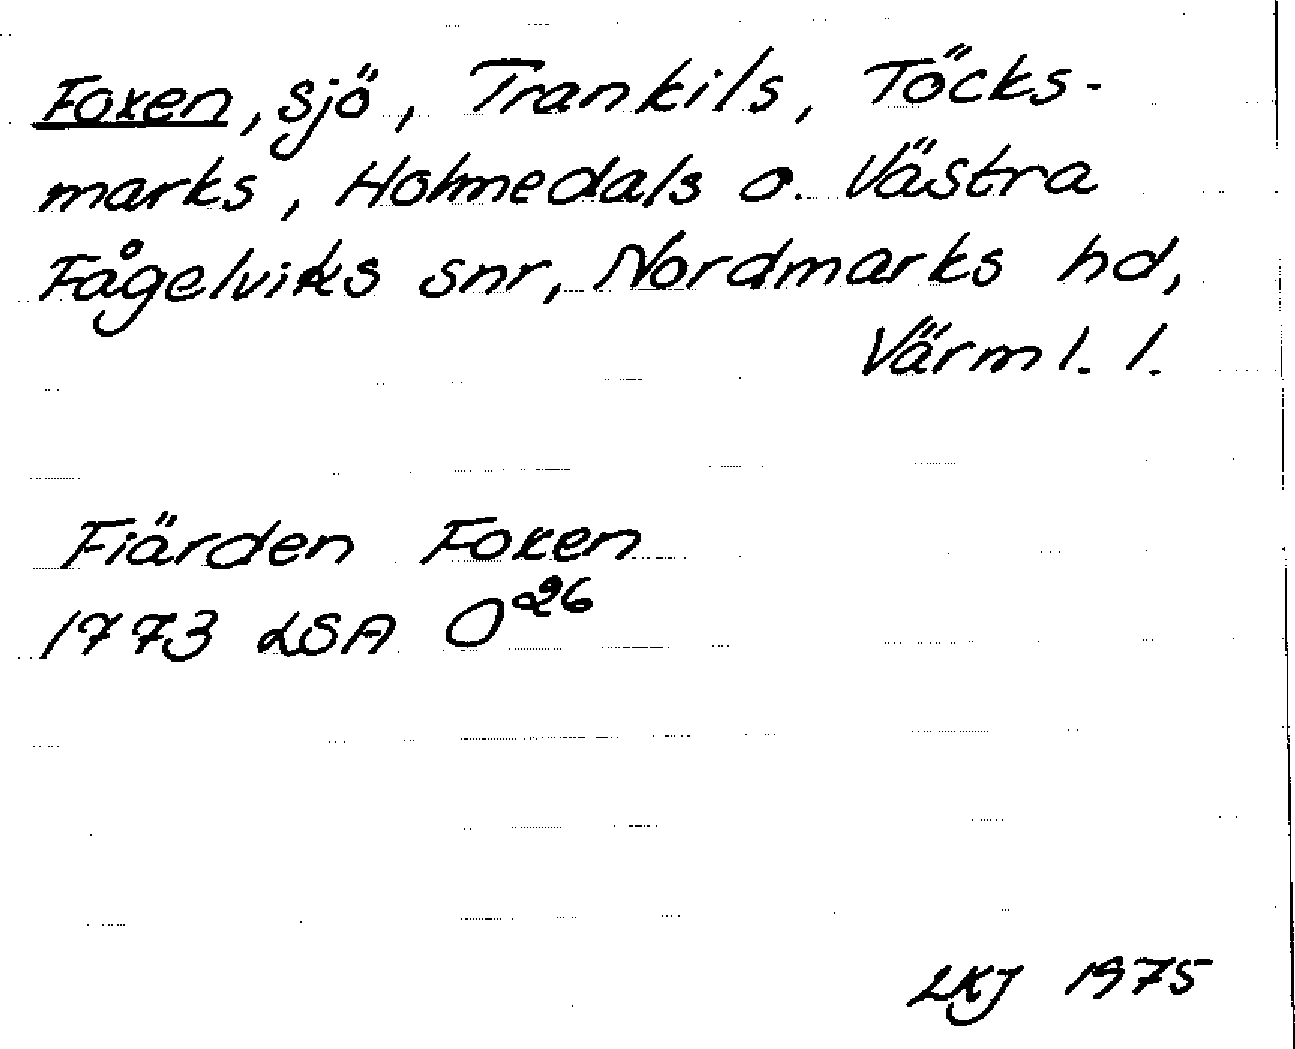 Foxen, sjö, Trankils, Töcks-
marks, Holmedals o. Västra
Fågelviks snr, Nordmarks hd,
Värml. l.
Fiärden Foxen
1773 LSA O26
LKJ 1975